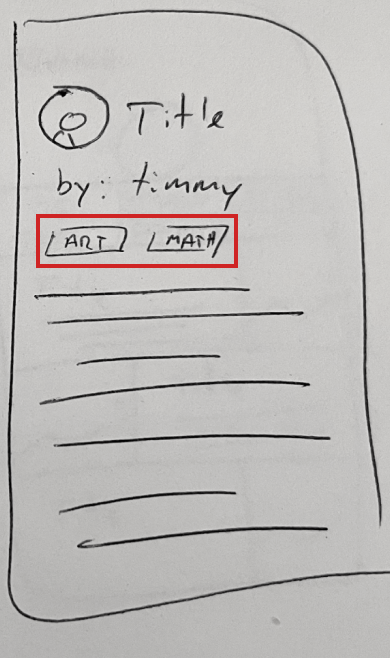 Title
by: timmy
ART MATH